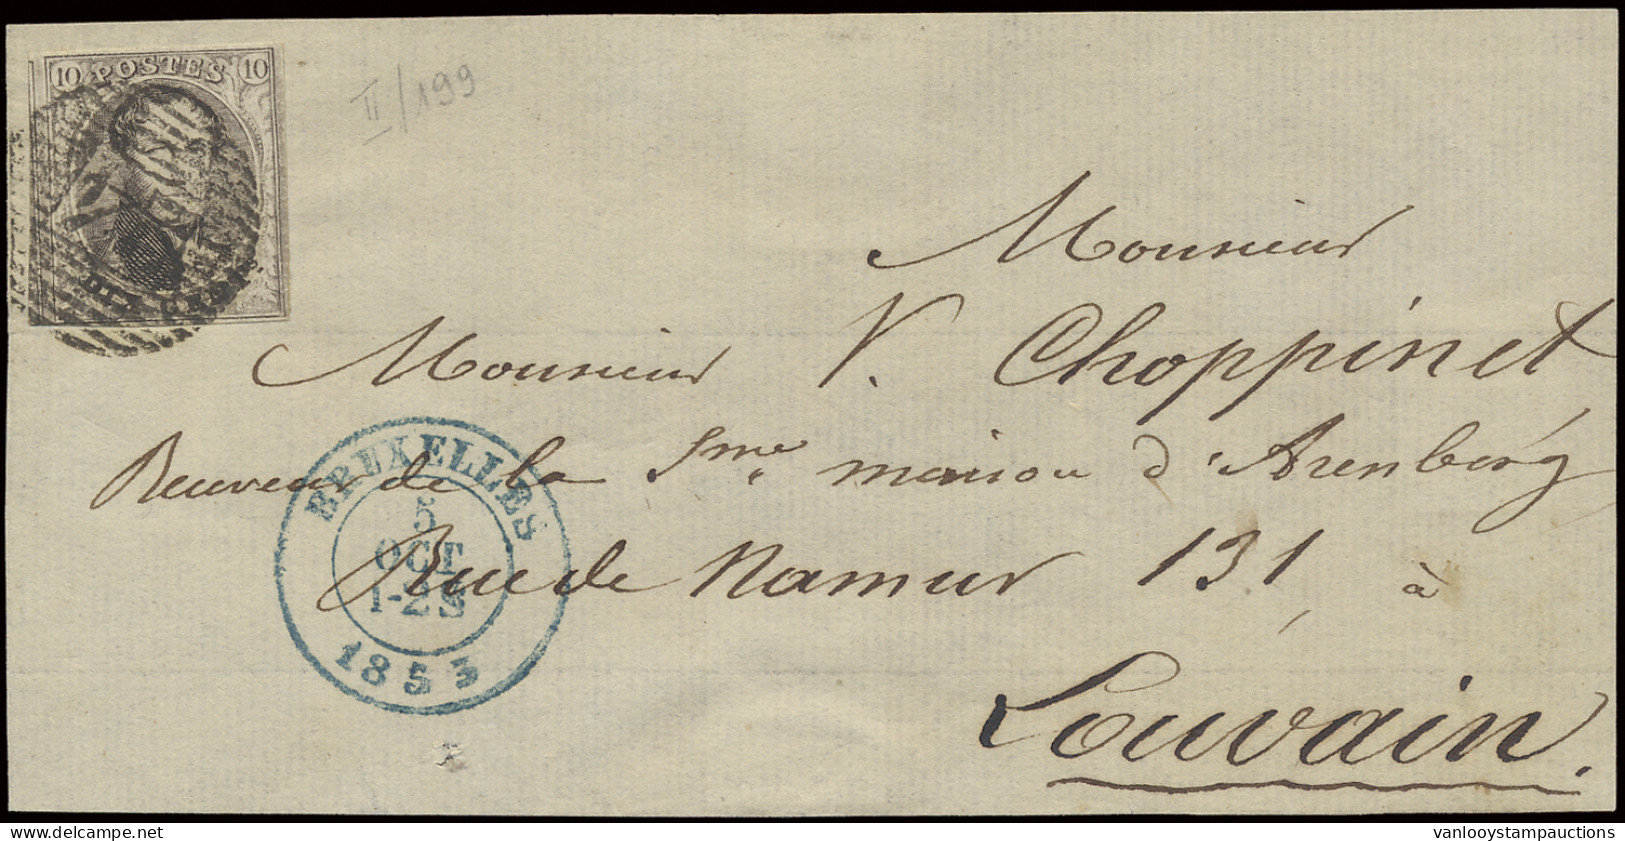 10 POSTES 10
II/199
DIX CENTS.
Monsieur
Monsieur V. Choppinet
Receveur de la Sme maison d'Arenberg
Rue de Namur 131, à
Louvain.
BRUXELLES
5
OCT
1-2S
1853
delcampe.net
vanlooystampauctions